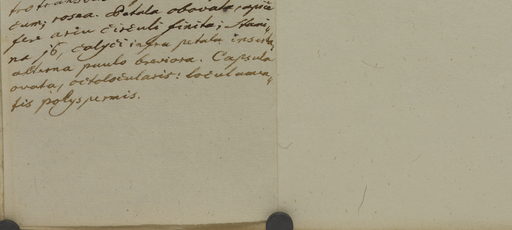 cum, rosea. Petala obovata, apice
fere arcu circuli finita; Stami-
na 16, calyci infra petala inserta,
alterna paulo breviora. Capsula
ovata, octolocularis: loculamen-
tis polyspermis.